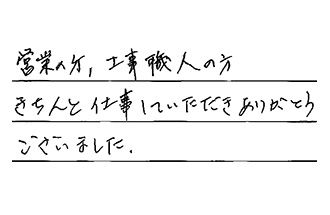 営業の方, 工事職人の方
きちんと仕事していただきありがとう
ございました.